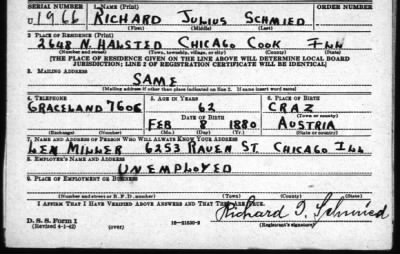 SERIAL NUMBER 1. NAME (Print) ORDER NUMBER
U 1966 RICHARD JULIUS SCHMIED
(First) (Middle) (Last)
2. PLACE OF RESIDENCE (Print)
2648 N. HALSTED CHICAGO COOK ILL
(Number and street) (Town, township, village, or city) (County) (State)
[THE PLACE OF RESIDENCE GIVEN ON THE LINE ABOVE WILL DETERMINE LOCAL BOARD
JURISDICTION; LINE 2 OF REGISTRATION CERTIFICATE WILL BE IDENTICAL]
3. MAILING ADDRESS
SAME
(Mailing address if other than place indicated on line 2. If same insert word same)
4. TELEPHONE 5. AGE IN YEARS 6. PLACE OF BIRTH
GRACELAND 7606 62 GRAZ
DATE OF BIRTH (Town or county)
FEB 8 1880 AUSTRIA
(Exchange) (Number) (Mo.) (Day) (Yr.) (State or country)
7. NAME AND ADDRESS OF PERSON WHO WILL ALWAYS KNOW YOUR ADDRESS
LEN MILLER 6253 RAVEN ST. CHICAGO ILL
8. EMPLOYER'S NAME AND ADDRESS
UNEMPLOYED
9. PLACE OF EMPLOYMENT OR BUSINESS
(Number and street or R. F. D. number) (Town) (County) (State)
I AFFIRM THAT I HAVE VERIFIED ABOVE ANSWERS AND THAT THEY ARE TRUE.
D. S. S. Form 1 Richard J. Schmied
(Revised 4-1-42) (over) 16—21630-2 (Registrant's signature)